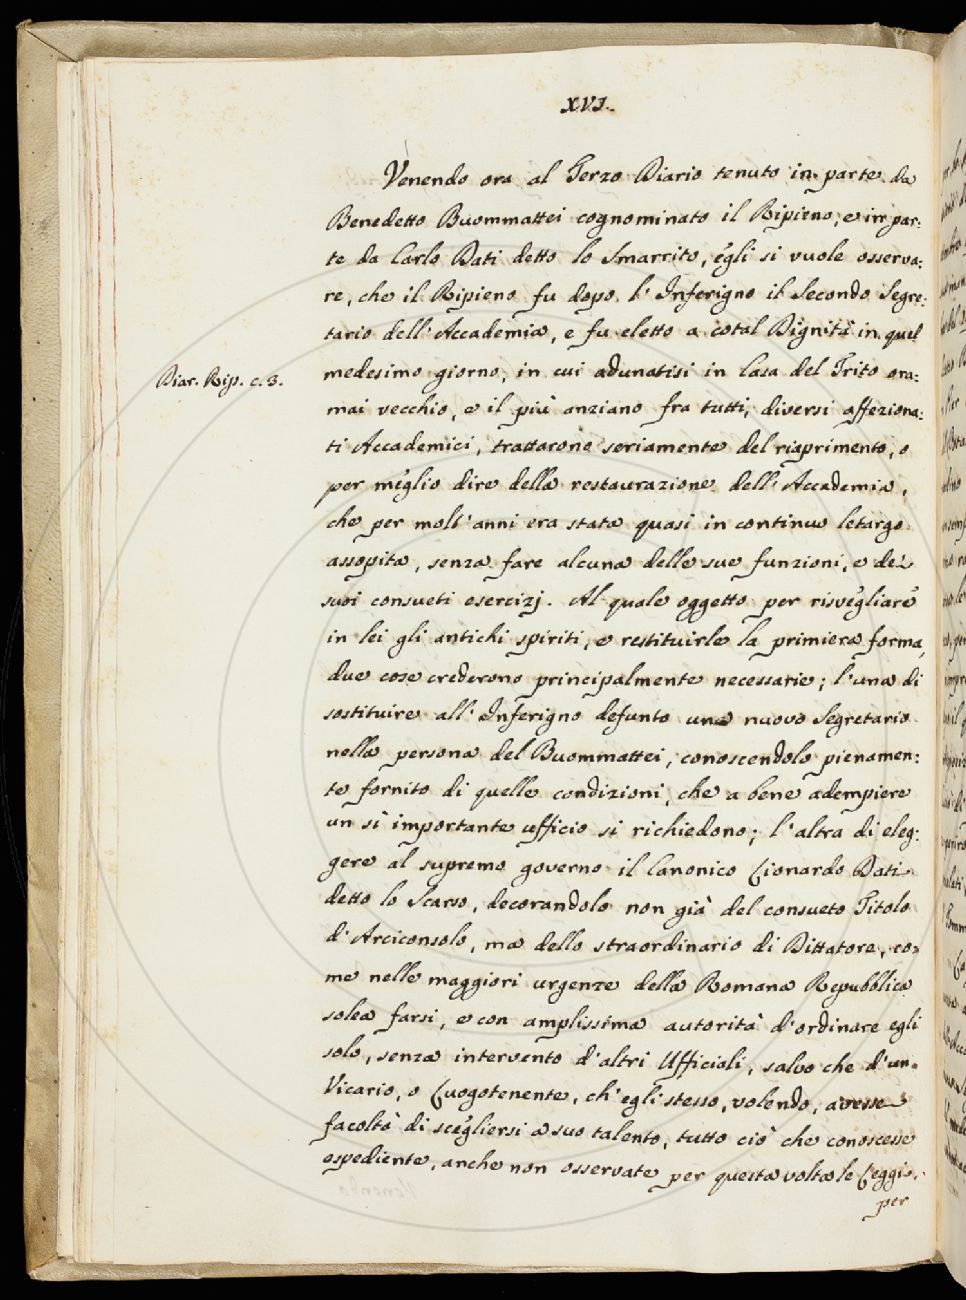 XVI.
Venendo ora al Terzo Diario tenuto in parte da
Benedetto Buommattei cognominato il Ripieno, e in par:
te da Carlo Dati detto lo Smarrito, egli si vuole osserva:
re, che il Ripieno fu dopo l'Inferigno il Secondo Segre:
tario dell'Accademia, e fu eletto a cotal Dignità in quel
Diar. Rip. c. 3.
medesimo giorno, in cui adunatisi in Casa del Trito ora:
mai vecchio, e il più anziano fra tutti, diversi affeziona:
ti Accademici, trattarono seriamente del riaprimento, o
per meglio dire della restaurazione dell'Accademia,
che per molt'anni era stata quasi in continuo letargo
assopita, senza fare alcuna delle sue funzioni, e de'
suoi consueti esercizj. Al quale oggetto per risvegliare
in lei gli antichi spiriti, e restituirle la primiera forma,
due cose crederono principalmente necessarie; l'una di
sostituire all'Inferigno defunto una nuovo Segretario
nella persona del Buommattei, conoscendolo pienamen:
te fornito di quelle condizioni, che a bene adempiere
un sì importante ufficio si richiedono; l'altra di eleg:
gere al supremo governo il Canonico Lionardo Dati
detto lo Scarso, decorandolo non già del consueto Titolo
d'Arciconsolo, ma dello straordinario di Dittatore, co:
me nelle maggiori urgenze della Romana Repubblica
solea farsi, e con amplissima autorità d'ordinare egli
solo, senza intervento d'altri Ufficioli, salvo che d'un
Vicario, o Luogotenente, ch'egli stesso, volendo, avesse
facoltà di scegliersi a suo talento, tutto ciò che conoscesse
espediente, anche non osservate per questa volta le Leggi,
per